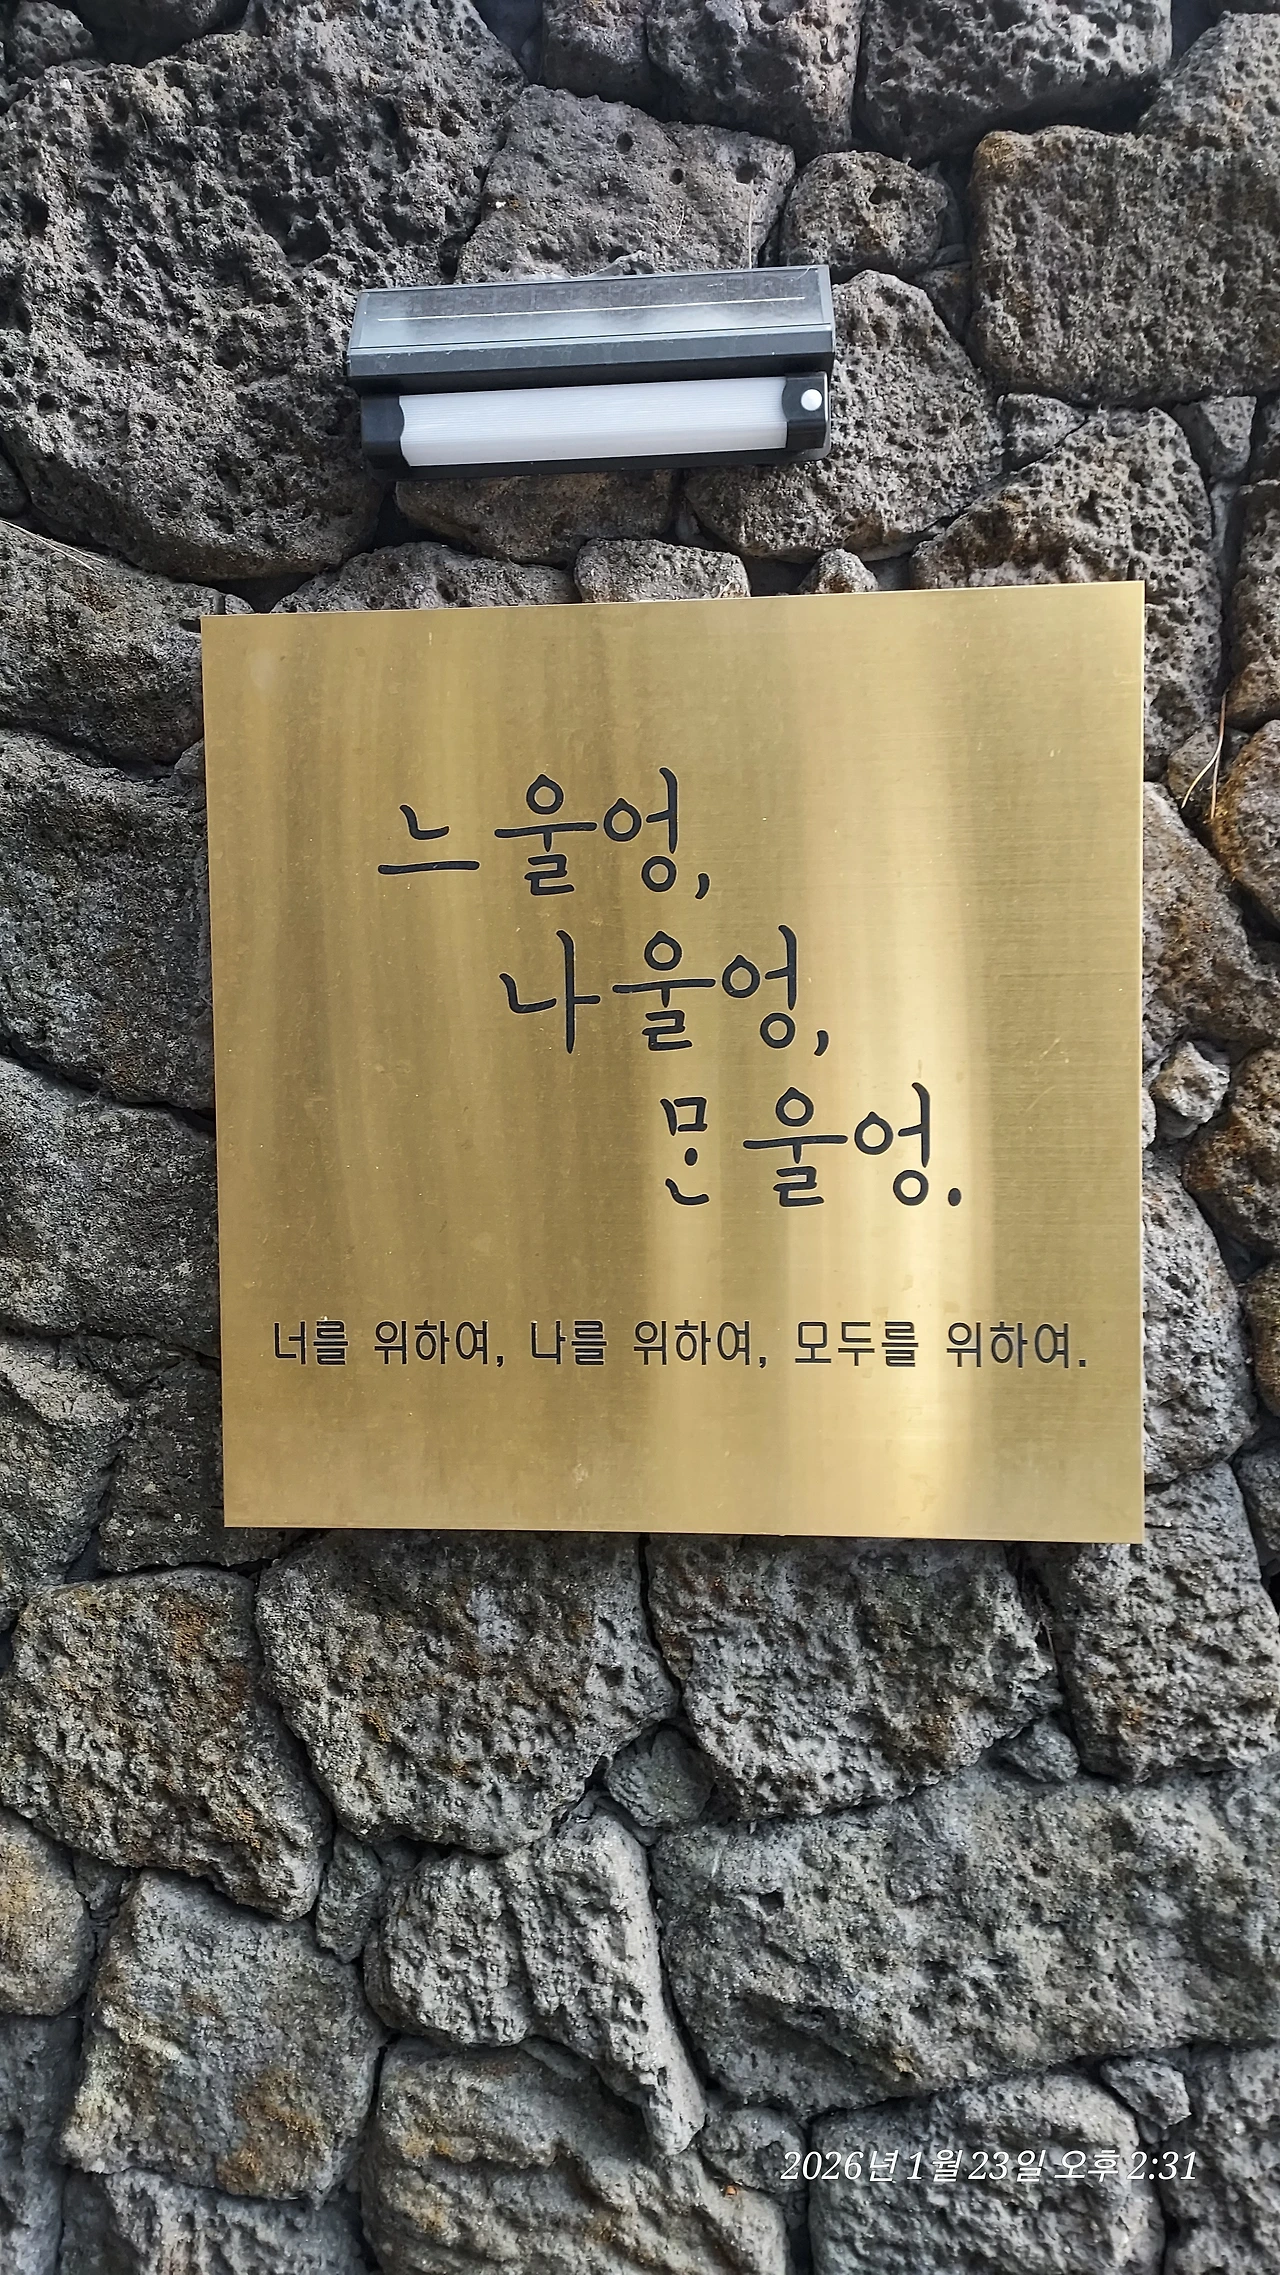 느 울엉,
나 울엉,
ᄆᆞᆫ 울엉.
너를 위하여, 나를 위하여, 모두를 위하여.
2026년 1월 23일 오후 2:31